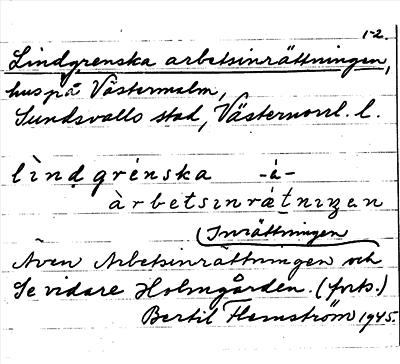 1-2.
Lindgrenska arbetsinrättningen,
hus på Västermalm,
Sundsvalls stad, Västernorrl. l.
lìnd grénska -á-
àrbetsınrátnıŋen
(Inrättningen
Även Arbetsinrättningen och
Se vidare Holmgården. (forts.)
Bertil Flemström 1945.